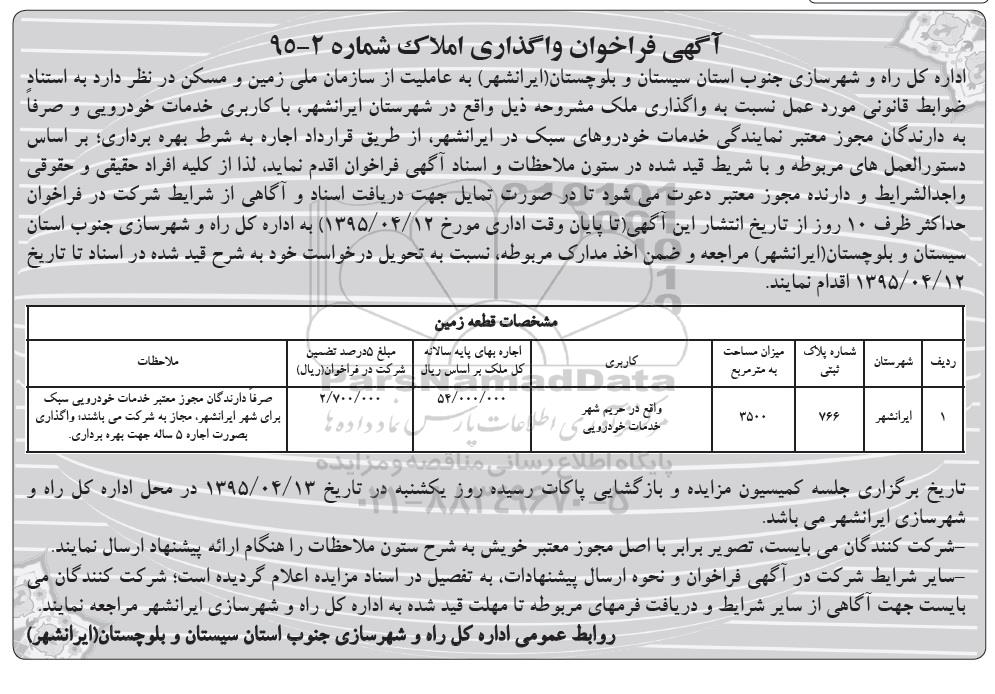 آگهی فراخوان واگذاری املاک شماره ۲-۹۵
اداره کل راه و شهرسازی جنوب استان سیستان و بلوچستان(ایرانشهر) به عاملیت از سازمان ملی زمین و مسکن در نظر دارد به استناد
ضوابط قانونی مورد عمل نسبت به واگذاری ملک مشروحه ذیل واقع در شهرستان ایرانشهر، با کاربری خدمات خودرویی و صرفاً
به دارندگان مجوز معتبر نمایندگی خدمات خودروهای سبک در ایرانشهر، از طریق قرارداد اجاره به شرط بهره برداری؛ بر اساس
دستورالعمل های مربوطه و با شریط قید شده در ستون ملاحظات و اسناد آگهی فراخوان اقدم نماید، لذا از کلیه افراد حقیقی و حقوقی
واجدالشرایط و دارنده مجوز معتبر دعوت می شود تا در صورت تمایل جهت دریافت اسناد و آگاهی از شرایط شرکت در فراخوان
حداکثر ظرف ۱۰ روز از تاریخ انتشار این آگهی(تا پایان وقت اداری مورخ ۱۳۹۵/۰۴/۱۲) به اداره کل راه و شهرسازی جنوب استان
سیستان و بلوچستان(ایرانشهر) مراجعه و ضمن اخذ مدارک مربوطه، نسبت به تحویل درخواست خود به شرح قید شده در اسناد تا تاریخ
۱۳۹۵/۰۴/۱۲ اقدام نمایند.
مشخصات قطعه زمین
ردیف شهرستان شماره پلاک ثبتی میزان مساحت به مترمربع کاربری اجاره بهای پایه سالانه کل ملک بر اساس ریال مبلغ ۵درصد تضمین شرکت در فراخوان(ریال) ملاحظات
۱ ایرانشهر ۷۶۶ ۳۵۰۰ واقع در حریم شهر خدمات خودرویی ۵۴/۰۰۰/۰۰۰ ۲/۷۰۰/۰۰۰ صرفاً دارندگان مجوز معتبر خدمات خودرویی سبک برای شهر ایرانشهر، مجاز به شرکت می باشند؛ واگذاری بصورت اجاره ۵ ساله جهت بهره برداری.
ParsNamadData
پایگاه اطلاع رسانی مناقصه و مزایده
۰۲۱-۸۸۳۴۹۶۷۰-۵
تاریخ برگزاری جلسه کمیسیون مزایده و بازگشایی پاکات رسیده روز یکشنبه در تاریخ ۱۳۹۵/۰۴/۱۳ در محل اداره کل راه و
شهرسازی ایرانشهر می باشد.
-شرکت کنندگان می بایست، تصویر برابر با اصل مجوز معتبر خویش به شرح ستون ملاحظات را هنگام ارائه پیشنهاد ارسال نمایند.
-سایر شرایط شرکت در آگهی فراخوان و نحوه ارسال پیشنهادات، به تفصیل در اسناد مزایده اعلام گردیده است؛ شرکت کنندگان می
بایست جهت آگاهی از سایر شرایط و دریافت فرمهای مربوطه تا مهلت قید شده به اداره کل راه و شهرسازی ایرانشهر مراجعه نمایند.
روابط عمومی اداره کل راه و شهرسازی جنوب استان سیستان و بلوچستان(ایرانشهر)